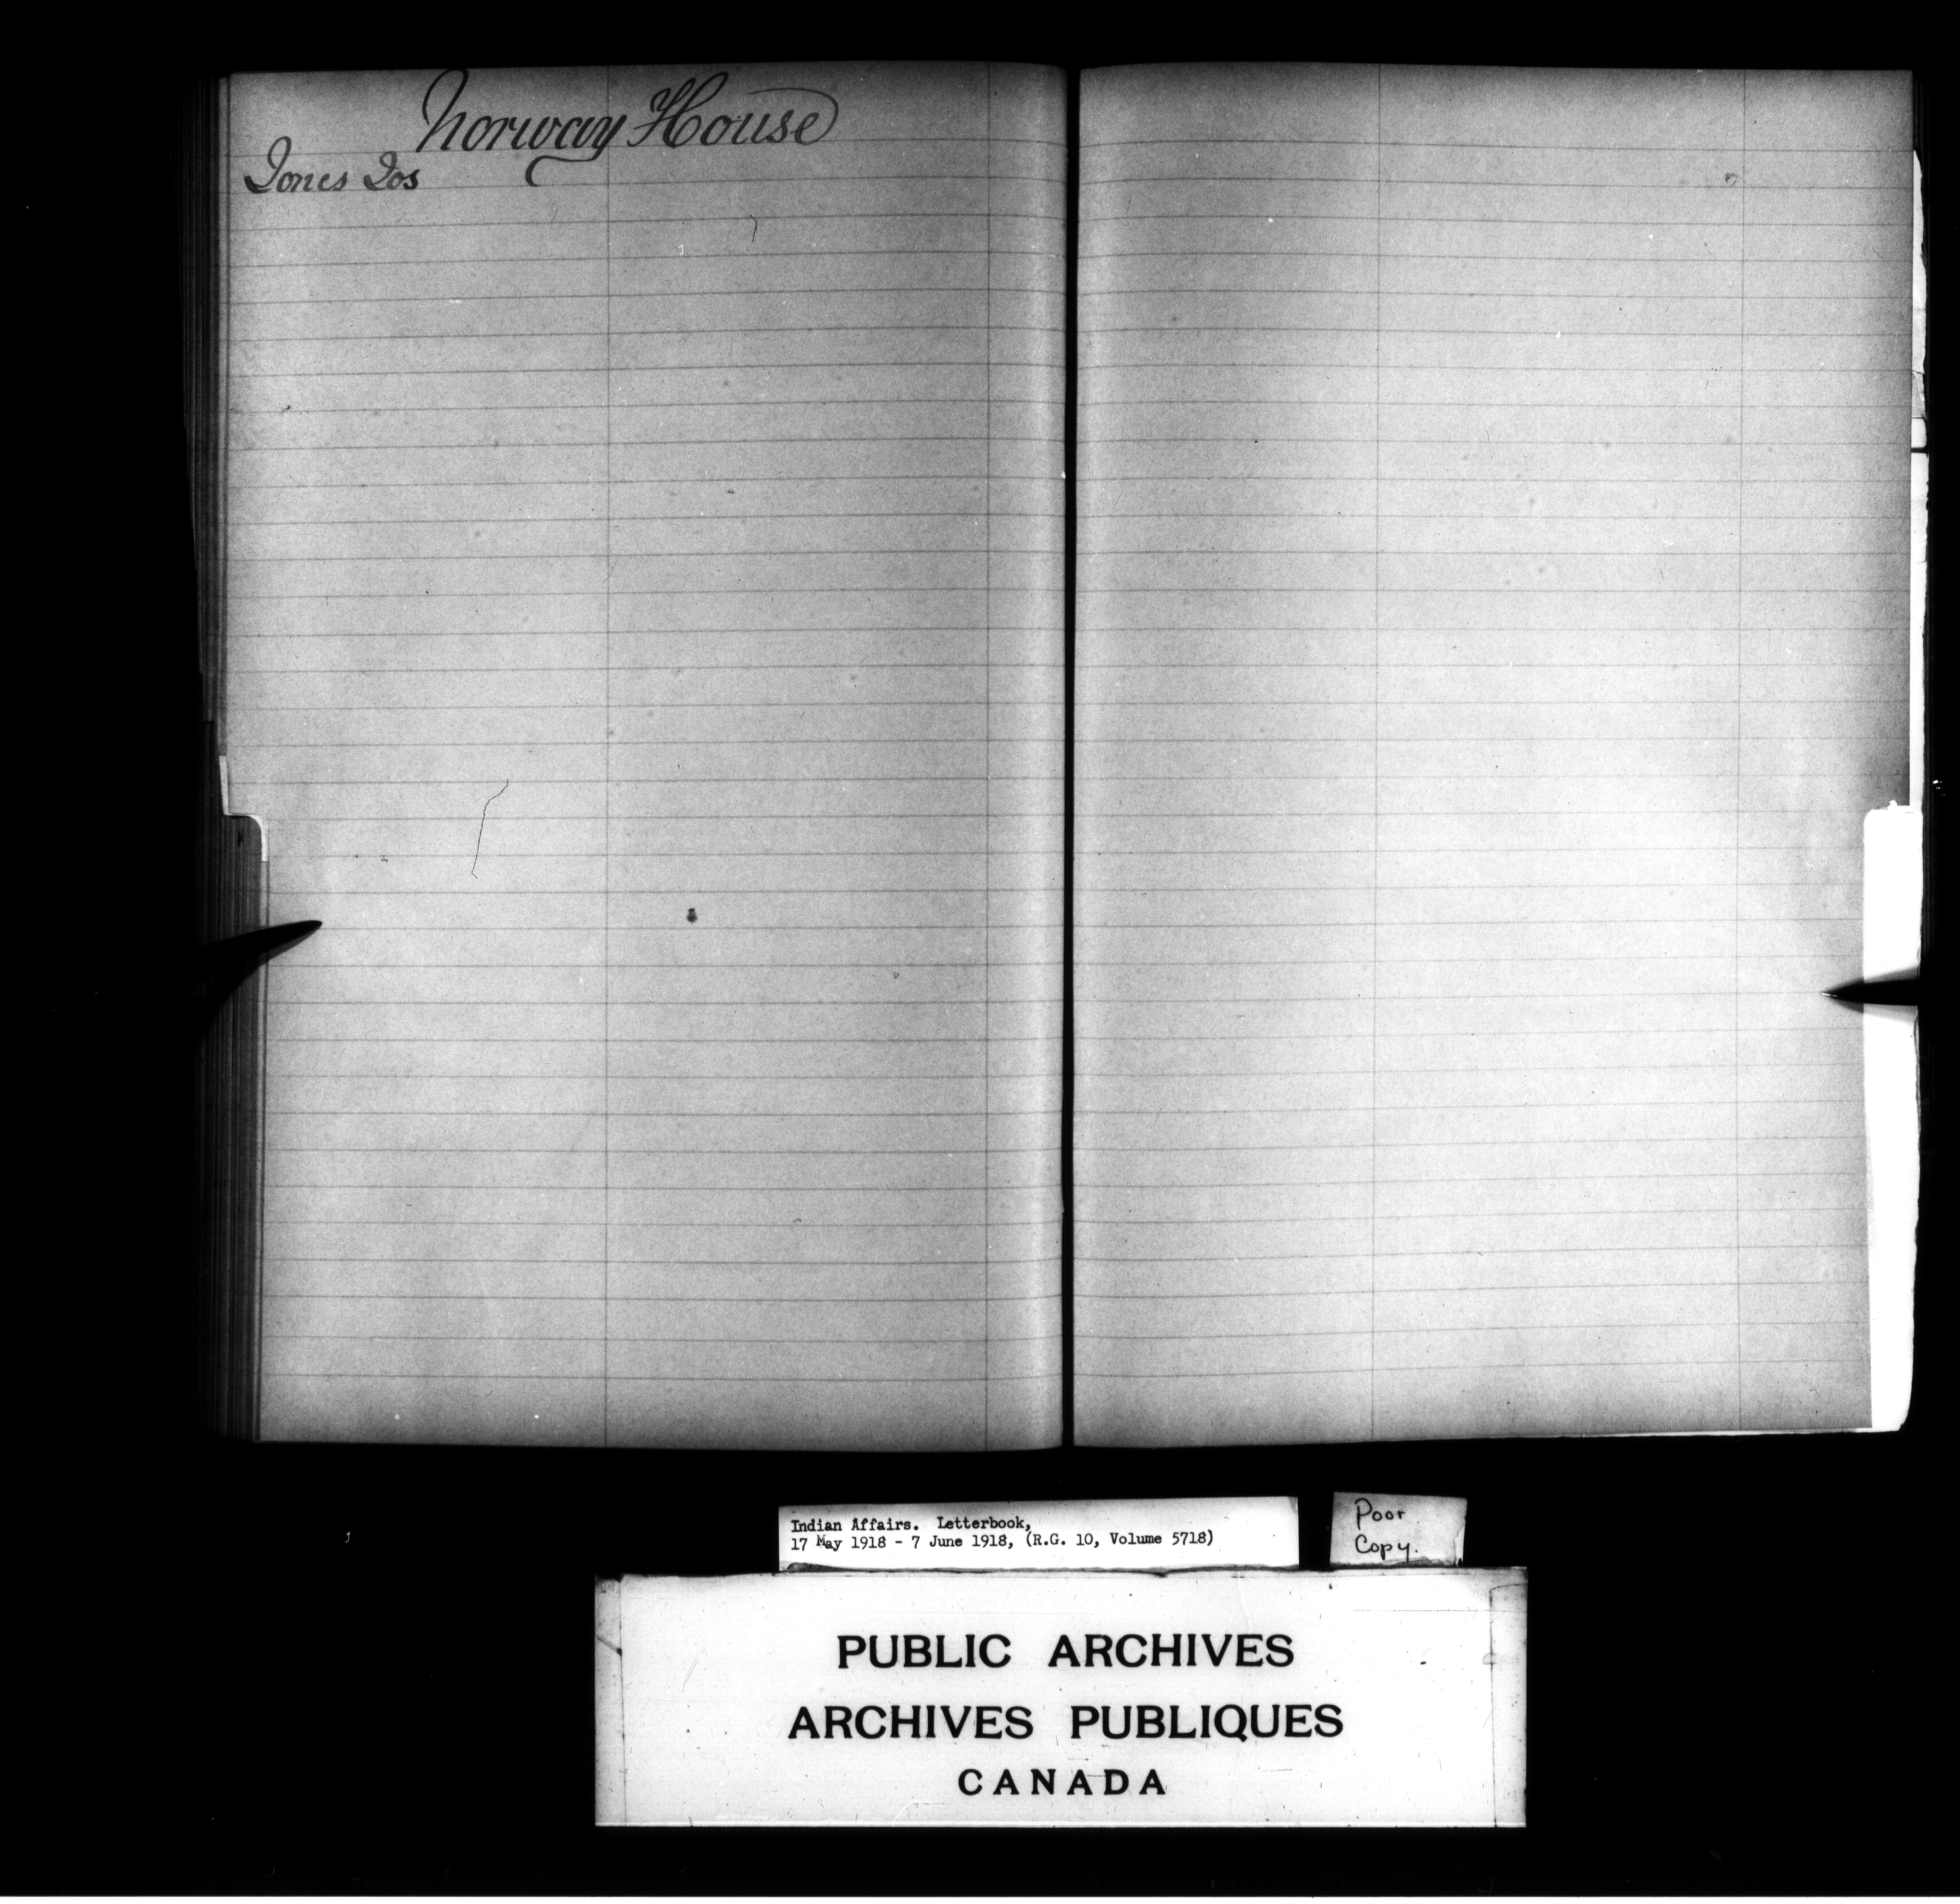 Norway House
Jones Jos
Indian Affairs. Letterbook,
17 May 1918 - 7 June 1918, (R.G. 10, Volume 5718)
Poor
Copy.
PUBLIC ARCHIVES
ARCHIVES PUBLIQUES
CANADA